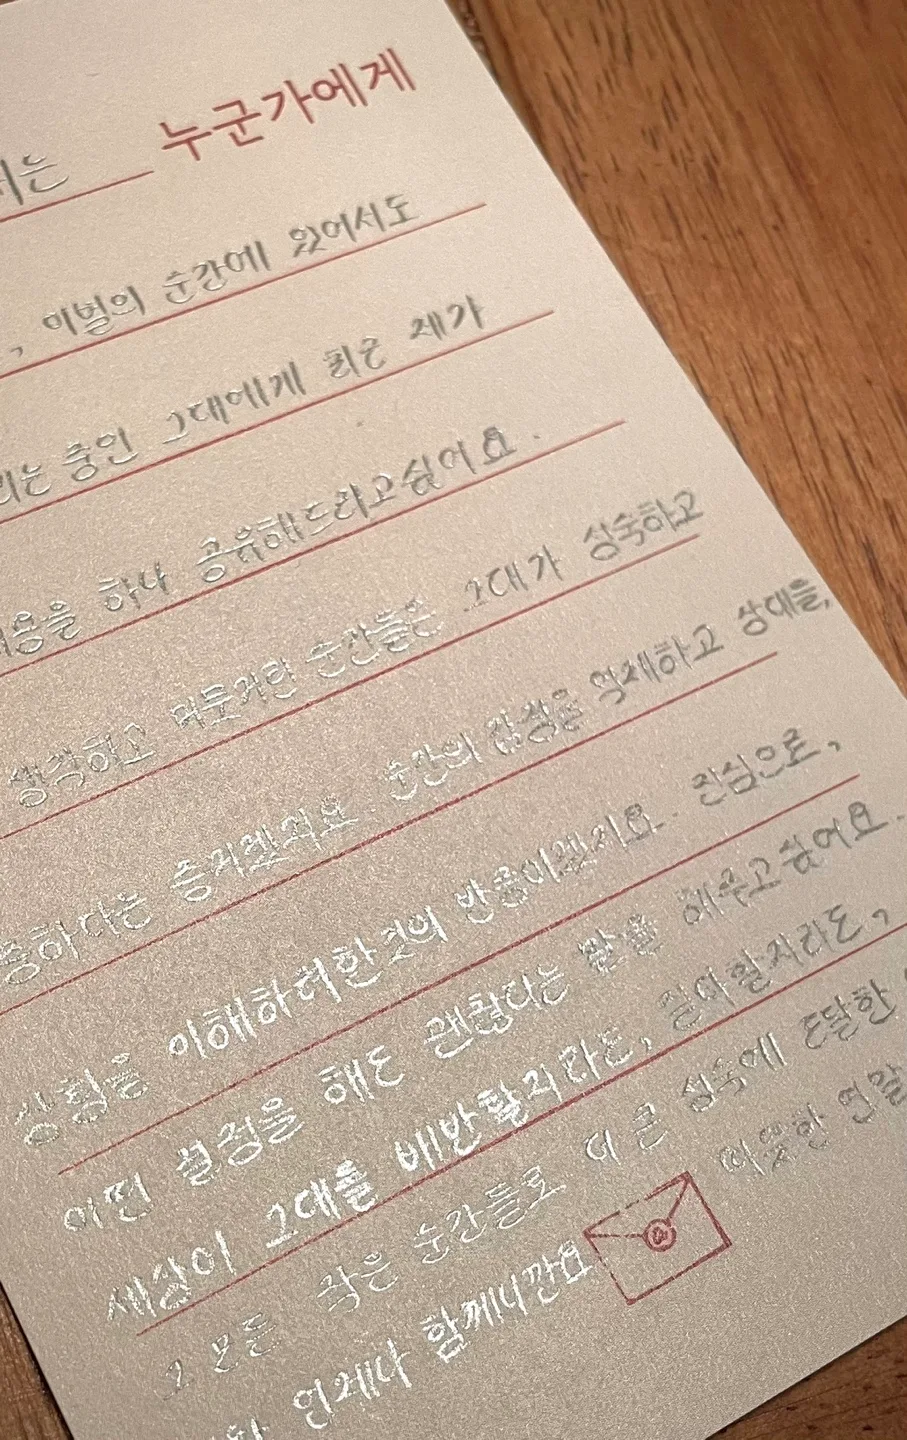 누군가에게
, 이별의 순간에 있어서도
중인 그대에게 최근 제가
내용을 하나 공유해드리고싶어요.
생각하고 머뭇거린 순간들은 그대가 성숙하고
중하다는 증거겠지요. 순간의 감정을 억제하고 상대를,
상황을 이해하려한것의 반응이겠지요. 진심으로,
어떤 결정을 해도 괜찮다는 말을 해주고싶어요.
세상이 그대를 배반할지라도, 질타할지라도,
그 모든 작은 순간들로 더 큰 성숙에 도달한
언제나 함께니깐요 따뜻한 연말